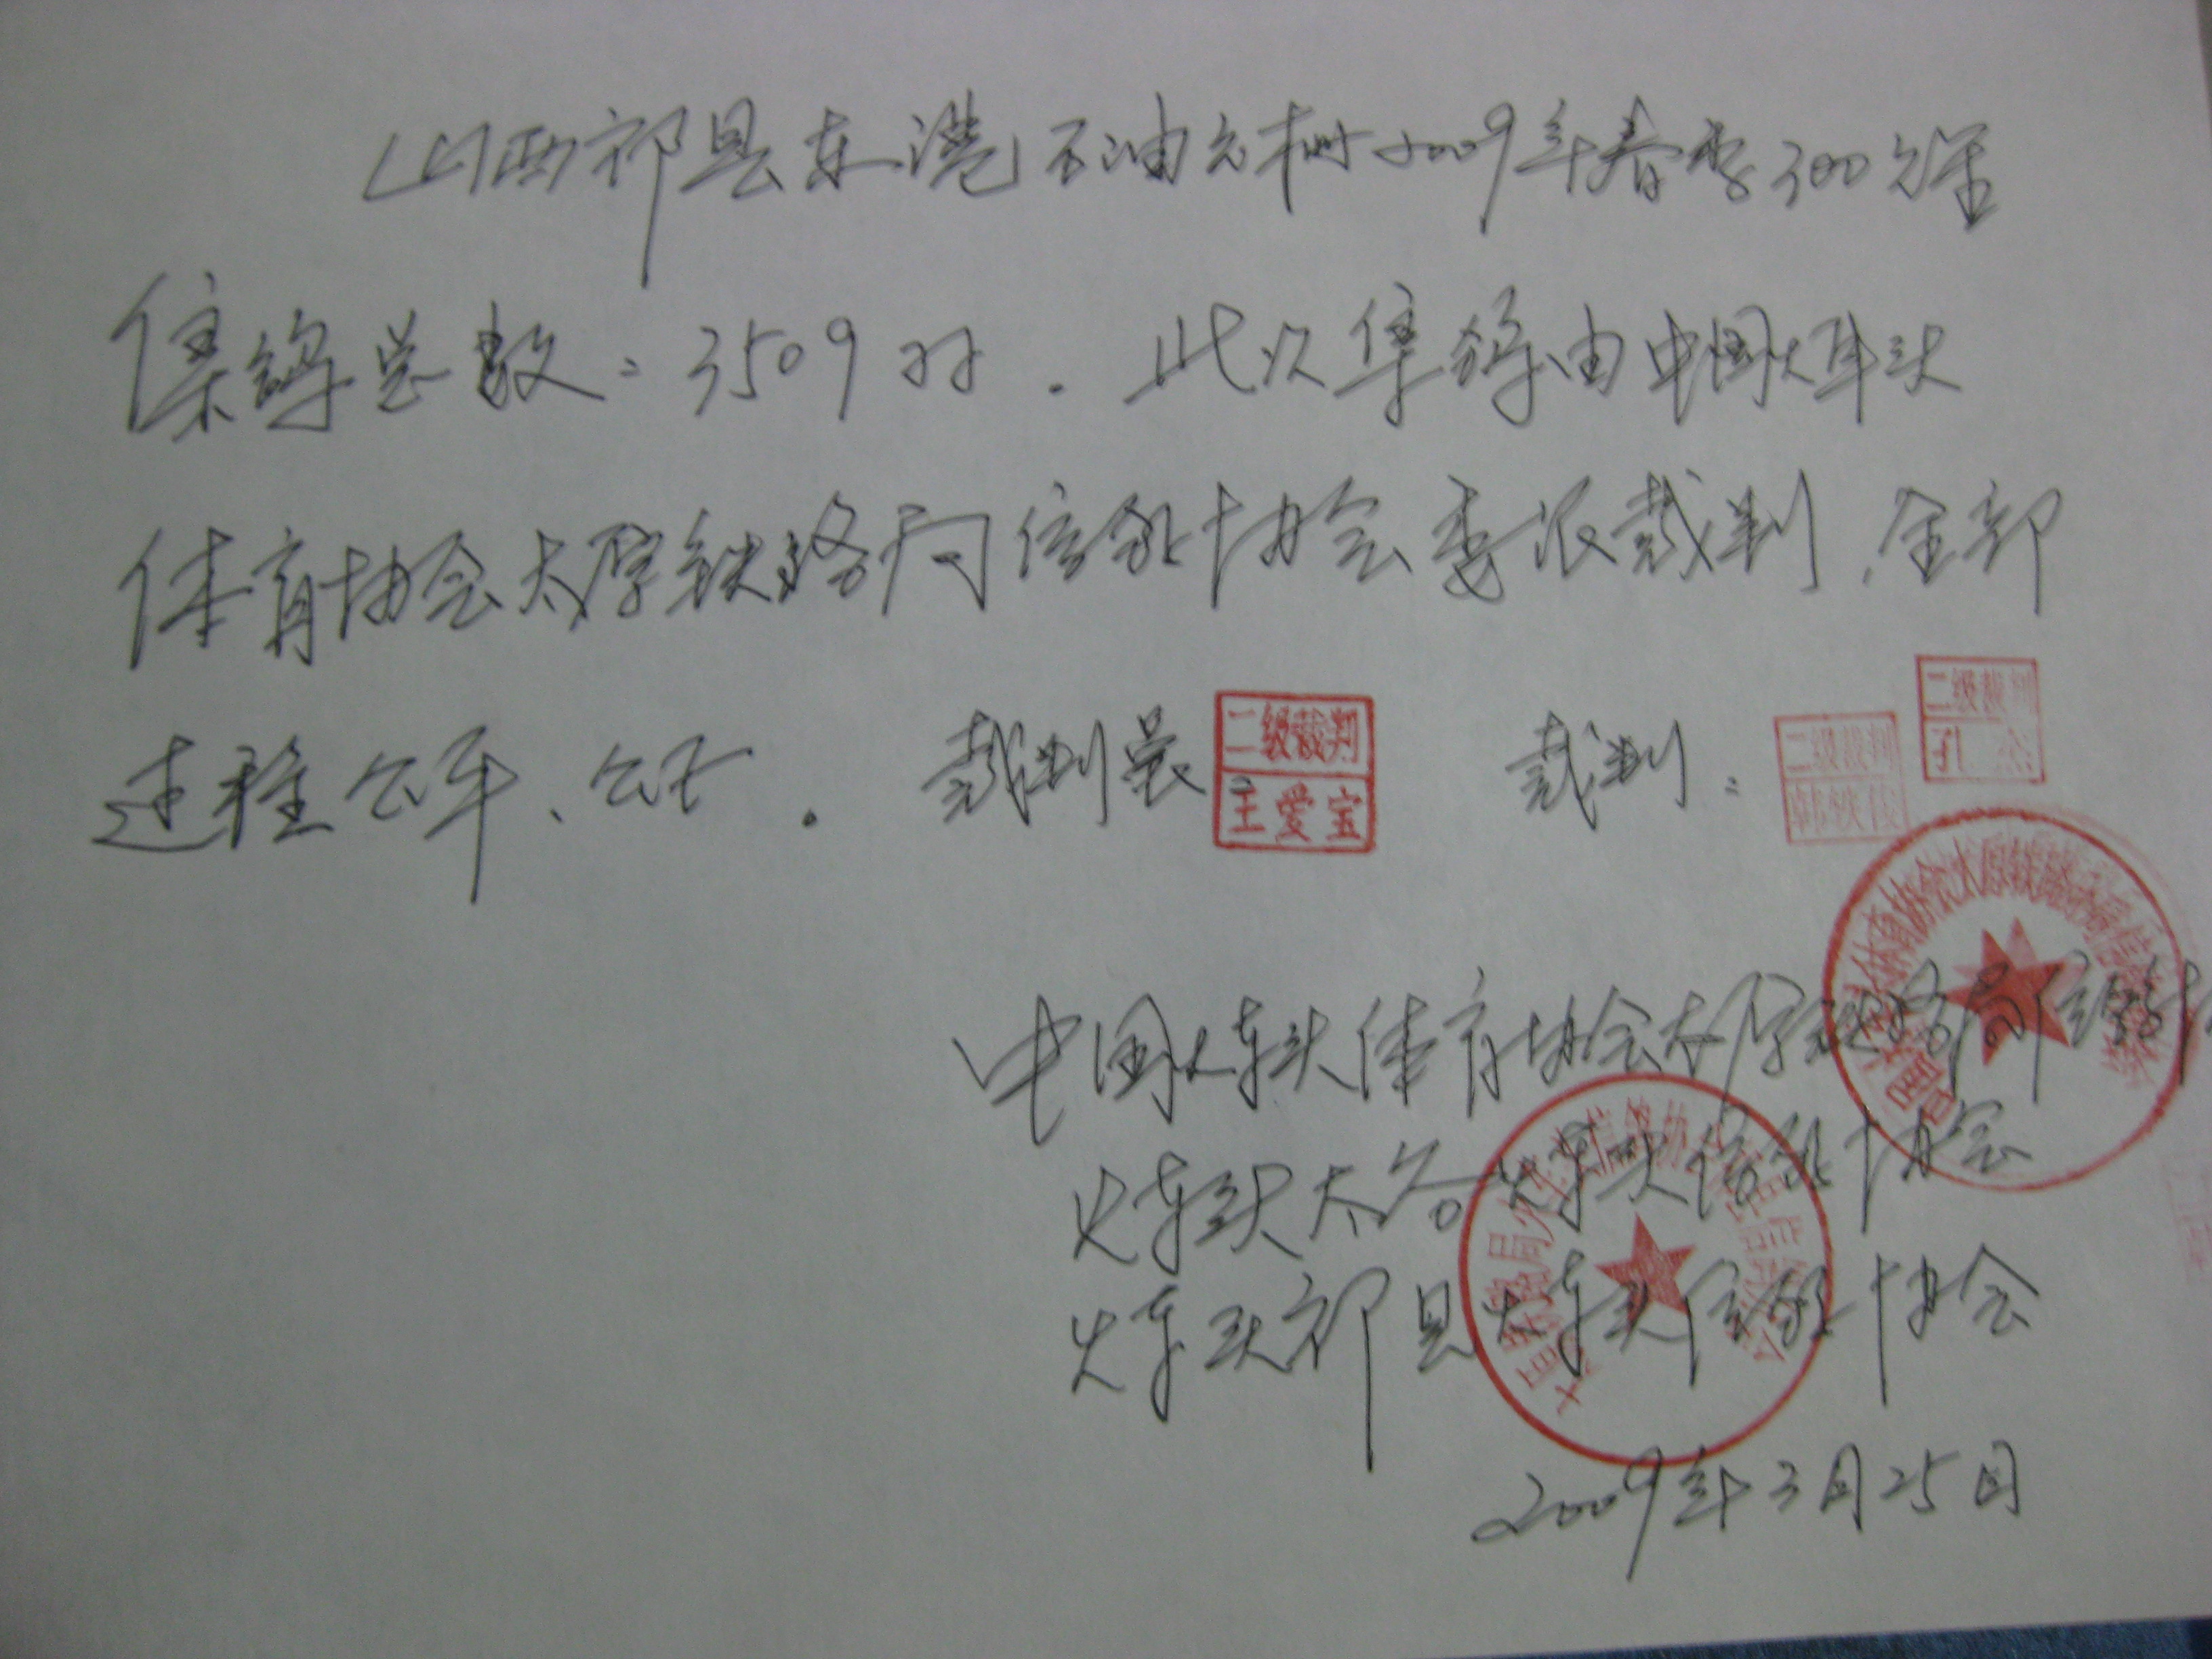 山西祁县东港石油公棚2009年春季300公里
集鸽总数：3509羽．此次集鸽由中国火车头
体育协会太原铁路局信鸽协会委派裁判，全部
过程公平、公正．裁判长 裁判：
二级裁判
王爱宝
二级裁判
孔 杰
二级裁判
韩铁俊
中国火车头体育协会太原铁路局信鸽协
火车头太谷火车头信鸽协会
火车头祁县火车头信鸽协会
2009年3月25日